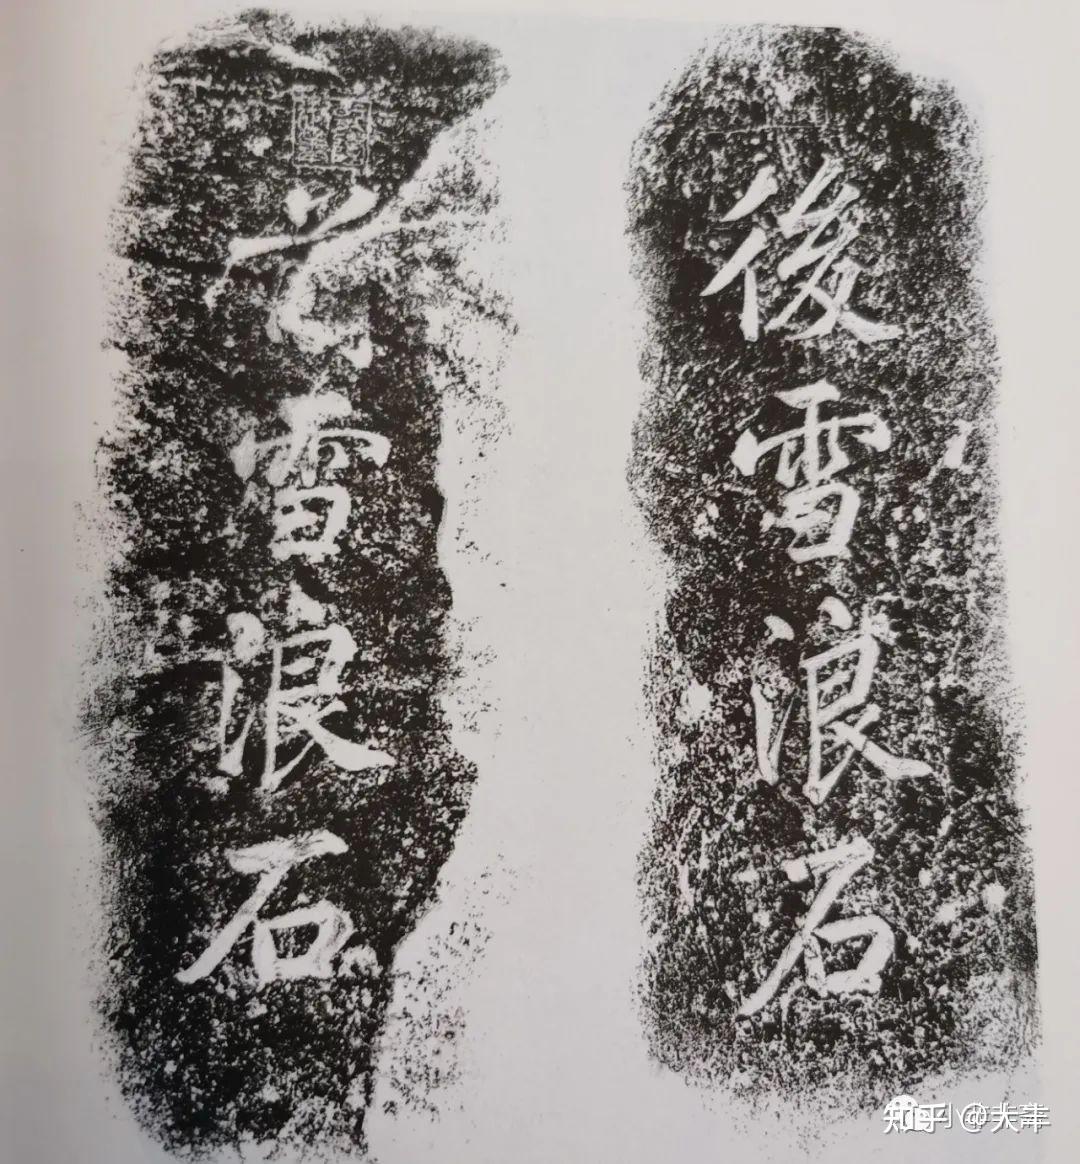 後雪浪石
前雪浪石
知乎